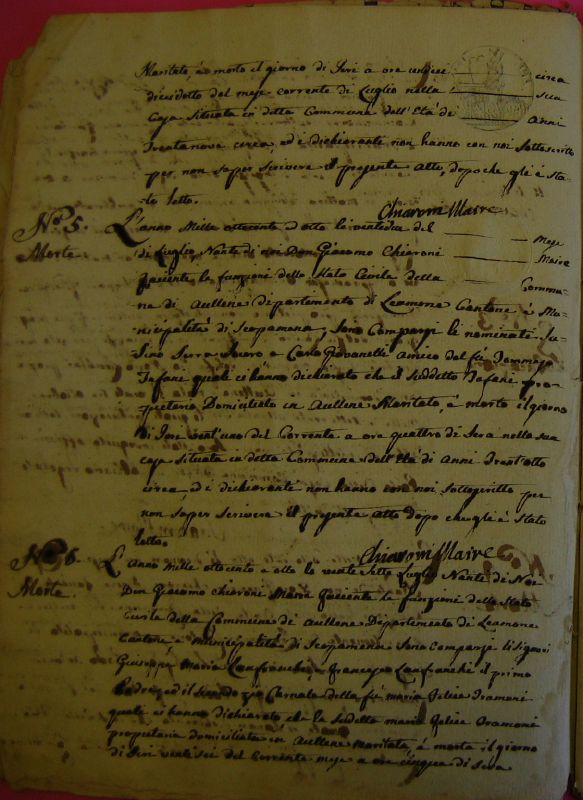 Maritato, è morto il giorno di Ieri a ore undeci circa
diecidotto del mese corrente di Luglio nella sua
Casa Situata in detta Commune dell'Età di Anni
Trentanove circa, ed i dichiaranti non hanno con noi Sottoscritto
per non saper Scrivere il presente Atto, dopo che gli è Sta-
to letto.
Chiaroni Maire
N.° 5.
Morte.
L'anno Mille ottocento ed otto li ventedue del Mese
di Luglio Nanti di noi Don Giacomo Chiaroni Maire
faciente le funzioni dello Stato Civile della Commu-
ne di Aullene Dipartimento di Leamone Cantone e Mu-
nicipalità di Scopamena, Sono Comparsi li nominati
Serra e Carlo Giovanetti amico del fù Tommaso
Tafani quali ci hanno dichiarato che il Suddetto Tafani Pro-
prietario Domiciliato in Aullene Maritato, è morto il giorno
di Ieri vent'uno del Corrente a ore quattro di Sera nella sua
casa Situata in detta Commune dell'Età di Anni Trent'otto
circa, ed i dichiaranti non hanno con noi Sottoscritto per
non saper Scrivere il presente atto dopo che gli è Stato
letto.
Chiaroni Maire
N.° 6.
Morte.
L'Anno Mille ottocento e otto li vente Sette Luglio Nanti di Noi
Don Giacomo Chiaroni Maire faciente le funzioni dello Stato
Civile della Commune di Aullene Dipartimento di Leamone
Cantone e Municipalità di Scopamena Sono Comparsi li Signori
Giuseppe Maria Lanfranchi, e Francesco Lanfranchi il primo
Padre, ed il Secondo zio Carnale della fù Maria Felice
quali ci hanno dichiarato che la Suddetta Maria Felice
proprietaria domiciliata in Aullene Maritata, è morta il giorno
di Ieri vente Sei del Corrente mese a ore cinque di Sera